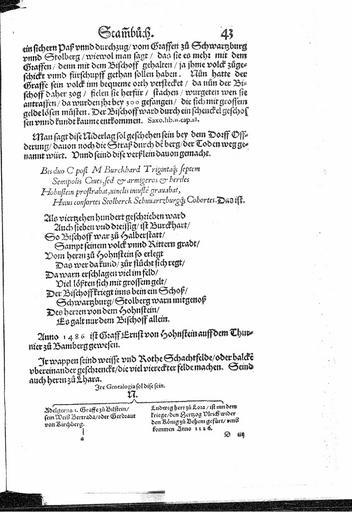 Stambůch. 43
ein sichern Paß vnnd durchzug / vom Graffen zů Schwartzburg
vnnd Stolberg / wiewol man sagt / das sie es mehr mit dem
Graffen / denn mit dem Bischoff gehalten / ja jhme volck zůge-
schickt vnnd fürschupff gethan sollen haben. Nůn hatte der
Graffe sein volck im bequeme orth versteckt / da nůn der Bi-
schoff daher zog / fielen sie herfür / stachen / würgeten wen sie
antraffen / da wurden jhr bey 300 gefangen / die sich mit grossem
geld lösen můsten. Der Bischoff ward durch ein schenckel geschos-
sen vnnd kundt kaume entkommen. Saxo.lib.11.cap.18.
Man sagt dise Niderlag sol geschehen sein bey dem Dorff Off-
derung / dauon noch die Straß durch dē berg / der Toden weg ge-
nannt würt. Vnnd seind dise verßlein dauon gemacht.
Bis duo C post M Burchhard Trigintaq; septem
Sempolis Ciues, sed & armigeros & heriles
Hohnstein prostrabat, vinclis inuestē grauabat,
Huius consortes Stolberck Schwartzburgq; Cohortes. Das ist.
Als viertzehen hundert geschrieben ward
Auch sieben vnd dreissig / ist Burckhart /
So Bischoff war zů Halberstatt /
Sampt seinem volck vnnd Rittern gradt /
Vom herrn zů Hohnstein so erlegt
Das wer da kundt / zůr flůcht sich regt /
Da warn erschlagen viel im feld /
Viel lößten sich mit grossem gelt /
Der Bischoff kriegt inns bein ein Schoß /
Schwartzburg / Stolberg warn mitgenoß
Des herren von dem Hohnstein /
Es galt nur dem Bischoff allein.
Anno 1486 ist Graff Ernst von Hohnstein auff dem Thur-
nier zů Bamberg gewesen.
Jr wappen seind weisse vnd Rothe Schachtfelde / oder balckē
vbereinander geschrenckt / die viel viereckter felde machen. Seind
auch herrn zů Lhara.
Jre Genealogia sol dise sein.
N.
Adelgerus 1. Graffe zů Bilstein /
sein Weib Bertrada / oder Gerdraut
von Kirchberg.
Ludwig herr zů Lora / ist mit dem
kriege / den Hertzog Vlrich wider
den König zů Behem gefůrt / vmb
kommen Anno 1126.
D iiij